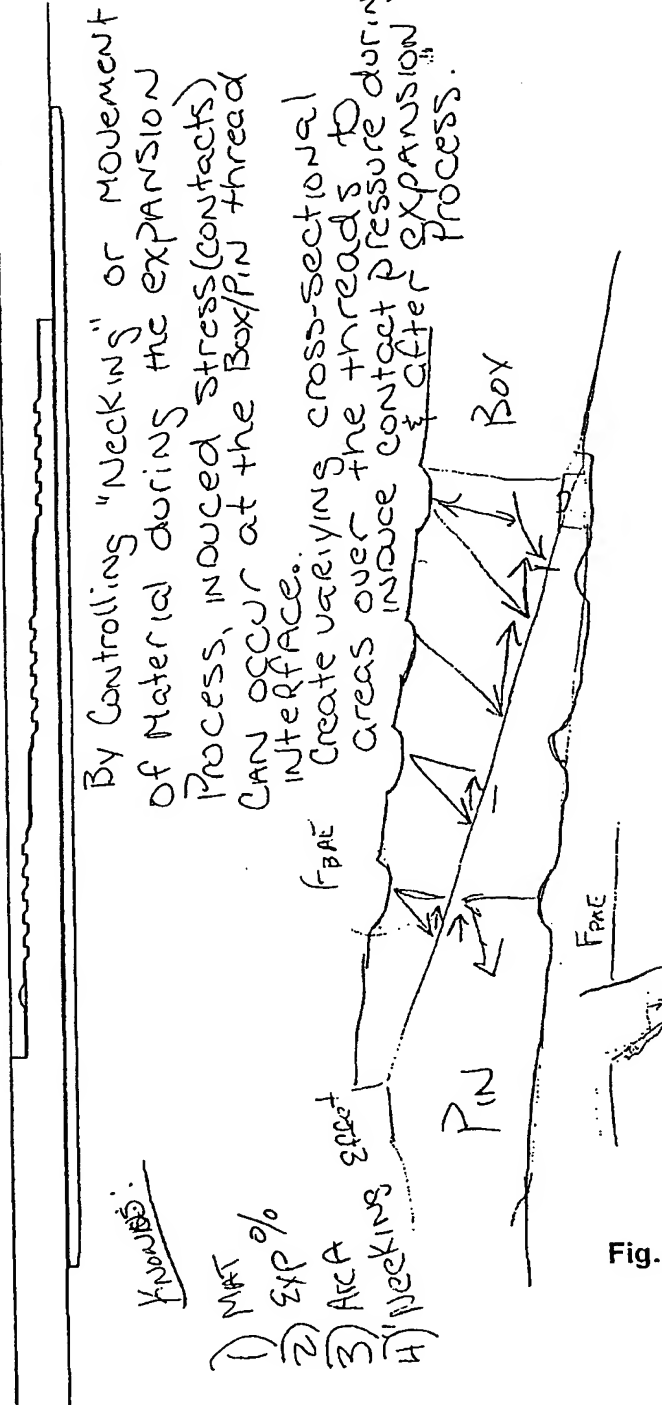 By Controlling "Necking" or Movement
of Material during the expansion
Process, induced stress (contacts)
can occur at the Box/Pin thread
interface.
Create variying cross-sectional
areas over the threads to
induce contact pressure during
& after expansion
process.
Knowns:
1) MAT
2) Exp %
3) Area
4) "Necking Effect
FBAE
Box
Pin
FPAE
Fig.